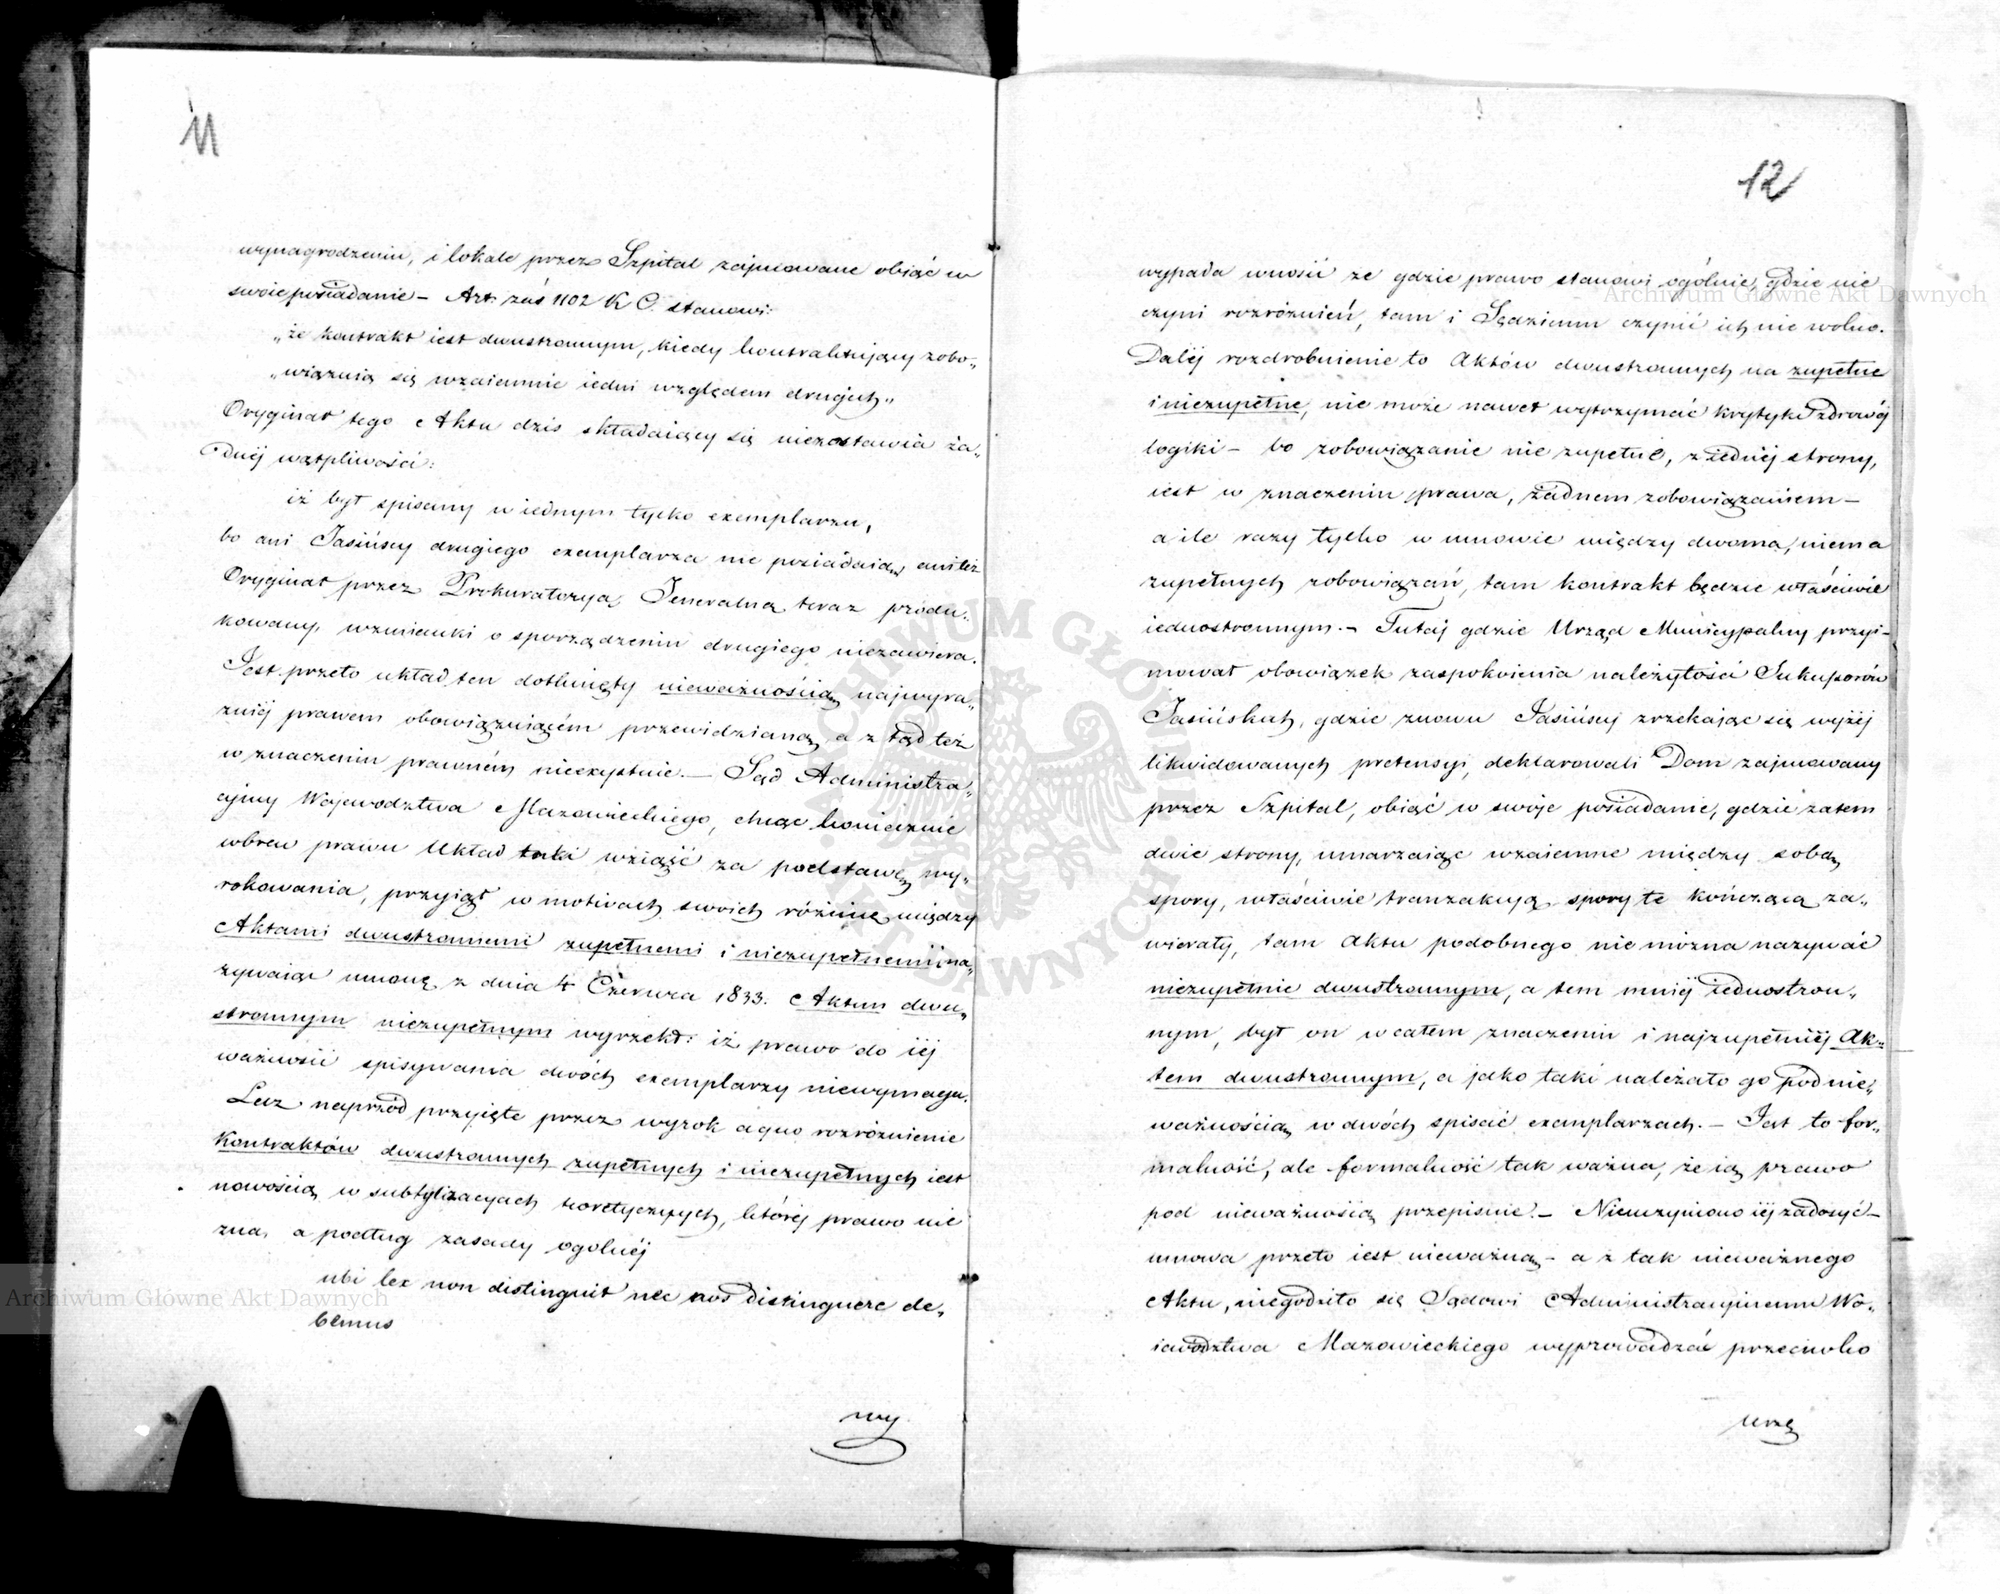 11
wynagrodzeniu, i lokale przez Szpital zajmowane obiąć w
swoie posiadanie – Art. zaś 1102 K C. stanowi:
„że kontrakt iest dwustronnym, kiedy kontraktuiący zobo„
„wiązuią się wzaiemnie iedni względem drugich„
Oryginał tego Aktu dziś składaiący się niezostawia ża„
dnéj wątpliwości:
iż był spisany w iednym tylko exemplarzu,
bo ani Jasińscy drugiego exemplarza nie posiadaią, ani też
Oryginał przez Prokuratoryą Jeneralną teraz produ„
kowany, wzmianki o sporządzeniu drugiego niezawiera.
Jest przeto układ ten dotknięty nieważnością najwyra„
źniéj prawem obowiązuiącém przewidzianą, a z tąd też
w znaczeniu prawném nieexystuie. – Sąd Administra„
cyjny Województwa Mazowieckiego, chcąc koniecznie
wbrew prawu Układ taki wziąść za podstawę wy„
rokowania, przyiął w motivach swoich różnicę między
Aktami dwustronnemi zupełnemi i niezupełnemi, na„
zywaiąc umowę z dnia 4 Czerwca 1833. Aktem dwu„
stronnym niezupełnym wyrzekł: iż prawo do iéj
ważności spisywania dwóch exemplarzy niewymaga.
Lecz naprzód przyięte przez wyrok a quo rozróżnienie
Kontraktów dwustronnych zupełnych i niezupełnych iest
nowością w subtylizacyach teoretycznych, któréj prawo nie
zna, a podług zasady ogólnéj
ubi lex non distinguit nec nos distinguere de„
bemus
wy
12
wypada wnosić że gdzie prawo stanowi ogólnie, gdzie nie
czyni rozróżnień, tam i Sędziemu czynić ich nie wolno.
Daléj rozdrobnienie to Aktów dwustronnych na zupełne
i niezupełne, nie może nawet wytrzymać krytyki zdrowéj
logiki – bo zobowiązanie nie zupełné, z iednéj strony,
iest w znaczeniu prawa, żadnem zobowiązaniem –
a ile razy tylko w umowie między dwoma, niema
zupełnych zobowiązań, tam kontrakt będzie właściwie
iednostronnym. – Tutaj gdzie Urząd Municypalny przyi–
mował obowiązek zaspokoienia należytości Sukcessorów
Jasińskich, gdzie znowu Jasińscy zrzekając się wyżéj
likwidowanych pretensyi, deklarowali Dom zajmowany
przez Szpital, obiąć w swoje posiadanie, gdzie zatem
dwie strony, umarzaiąc wzaiemne między sobą
spory, właściwie tranzakcyą spory te kończącą za„
wierały, tam Aktu podobnego nie można nazywać
niezupełnie dwustronnym, a tem mniéj iednostron„
nym, był on w całem znaczeniu i najzupełniéj Ak„
tem dwustronnym, a jako taki należało go pod nie„
ważnością w dwóch spisać exemplarzach. – Jest to for„
malność, ale formalność tak ważna, że ią prawo
pod nieważnością przepisuie. – Nieuczyniono iéj zadosyć –
umowa przeto iest nieważną – a z tak nieważnego
Aktu, niegodziło się Sądowi Administracyjnemu Wo„
iewództwa Mazowieckiego wyprowadzać przeciwko
Urzę
Archiwum Główne Akt Dawnych
Archiwum Główne Akt Dawnych
ARCHIWUM GŁÓWNE AKT DAWNYCH